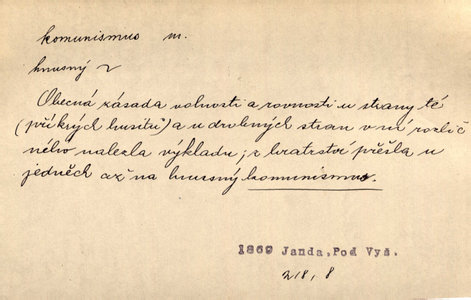 komunismus m.
hnusný ~
Obecná zásada volnosti a rovnosti u strany té
(příkrých husitů) a u drobných stran v ní rozlič
ného nalezla výkladu; z bratrství přešla u
jedněch až na hnusný komunismus.
1869 Janda, Pod Vyš.
218, 8